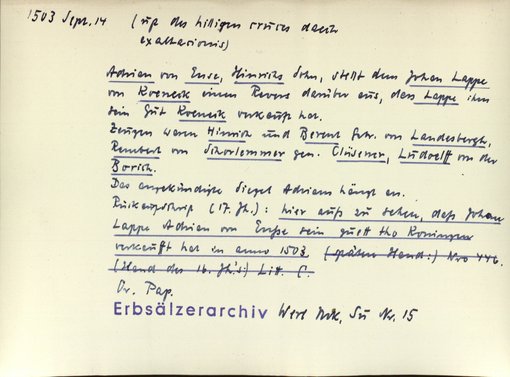 1503 Sept. 14 (up des hilligen cruces daech
exaltacionis)
Adrian von Ense, Hinrichs Sohn, stellt dem Johan Lappe
von Koeneck einen Revers darüber aus, dass Lappe ihm
sein Gut Koeneck verkauft hat.
Zeugen waren Hinrich und Berent Gebr. von Landesbergh,
Rembert von Schorlemmer gen. Clusener, Ludolff von der
Borich.
Das angekündigte Siegel Adrians hängt an.
Rückaufschrp. (17. Jh.): hier auß zu sehen, daß Johan
Lappe Adrian von Enße sein guett tho Koningen
verkaufft hat in anno 1503. (spätere Hand:) Nro 446.
(Hand des 16. Jh's) Litt. C.
Or. Pap.
Erbsälzerarchiv Werl Urk. Nr. 15